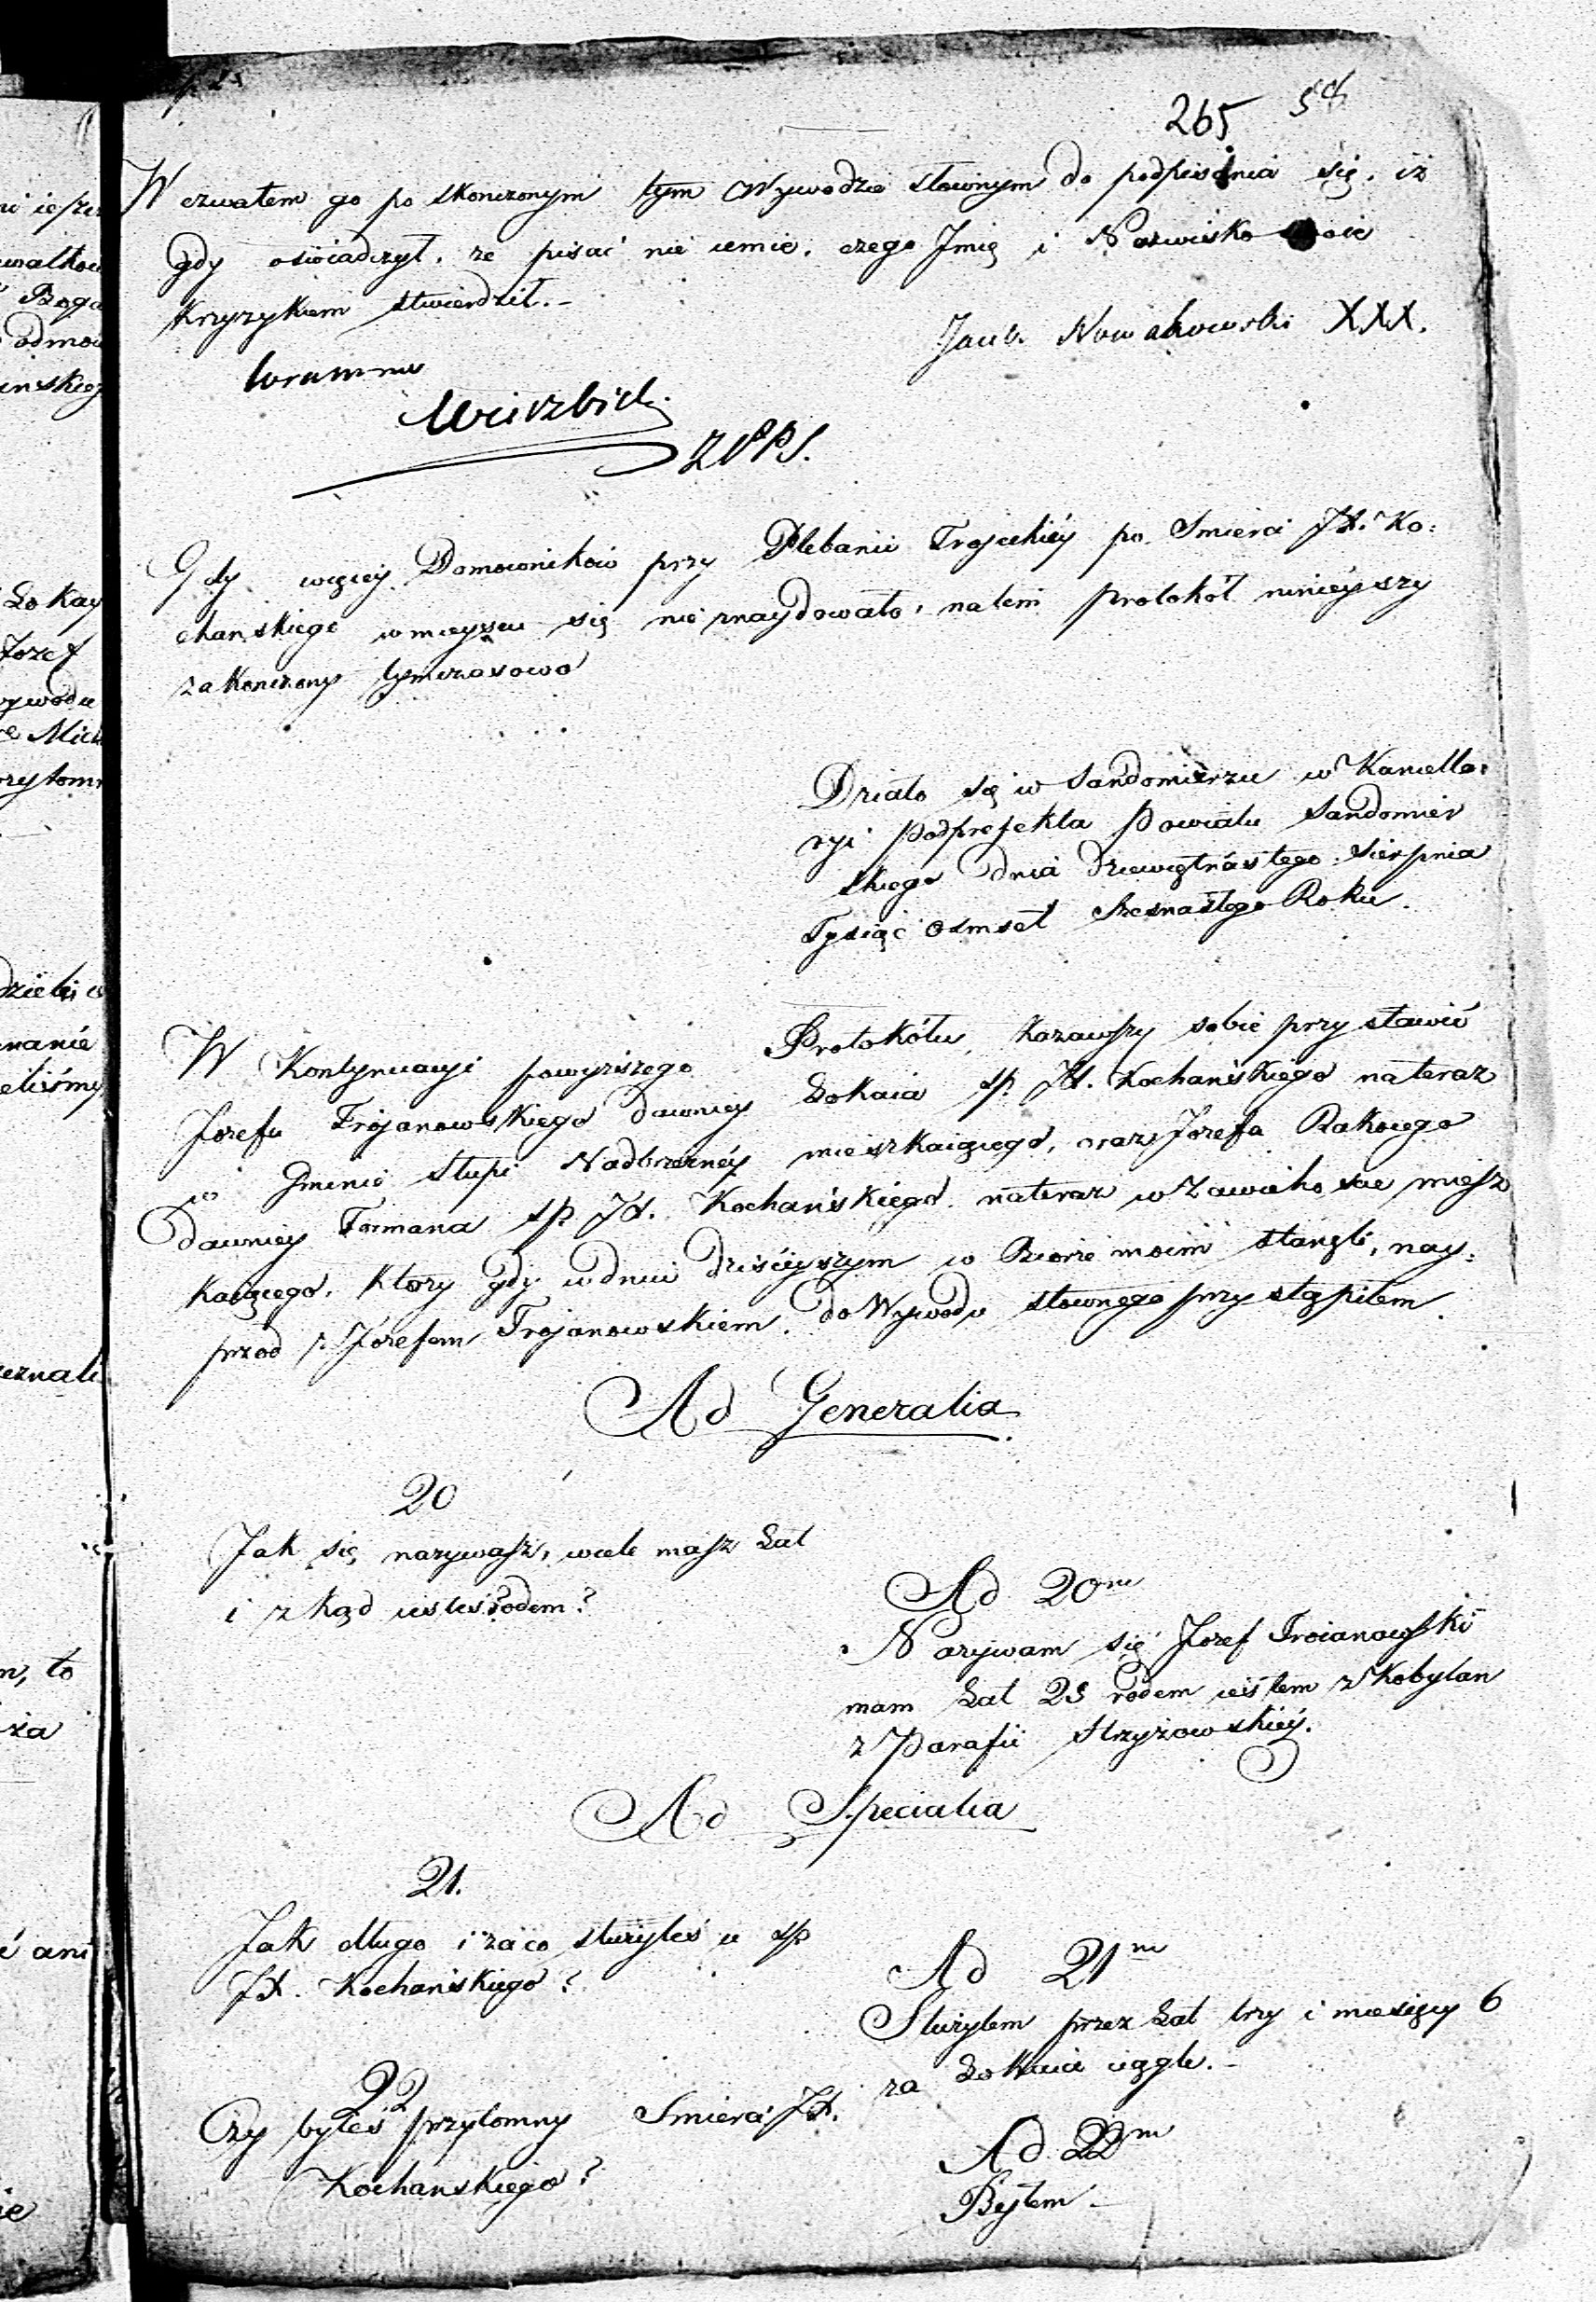 265 58
Wezwałem go po skonczonym tym Wywodzie słownym do podpisania się, iż
gdy oswiadczył, że pisać nie umie, czego Jmię i Nazwisko swoie
Krzyzykiem stwierdził.-
Jacub Nowakowski XXX.
Coram me
Wierzbick
ZPPS.
Gdy więcey Domowników przy Plebanii Trojeckiéy po Smierci JX. Ko:
chanskiego w mieyscu się nie znaydowało, na tem protokół ninieyszy
zakonczony tymczasowo
Działo się w Sandomierzu w Kancella:
ryi Podprefekta Powiatu Sandomier
skiego dnia dziewiętnastego Sierpnia
Tysiąc osmset szesnastego Roku.
W Kontynuacyi powyższego Protokółu, kazawszy sobie przystawić
Jozefa Trojanowskiego dawniey Lokaia sp. JX. Kochańskiego na teraz
w Gminie Słupi Nadbrzeznéy mieszkaiącego, oraz Jozefa Rakoiego
dawniey Formana sp. JX. Kochańskiego na teraz w Zawichoscie miesz
kaiącego, ktory gdy w dniu dzisieyszym w Biorze moim stanęli, nay:
przod z Jozefem Trojanowskiem do Wywodu słownego przystąpiłem.
Ad Generalia
20
Jak się nazywasz, wiele masz Lat
i zkąd iesteś rodem?
Ad 20m
Nazywam się Jozef Troianowski
mam Lat 23 rodem iestem z Kobylan
z Parafii Strzyżowskiéy.
Ad Specialia
21.
Jak długo i za co służyłeś u sp
JX. Kochańskiego?
Ad 21m
Służyłem przez Lat trzy i miesięcy 6
za Lokaia ciągle.-
22
Czy byłeś przytomny Smierci JX.
Kochanskiego?
Ad 22m
Byłem-